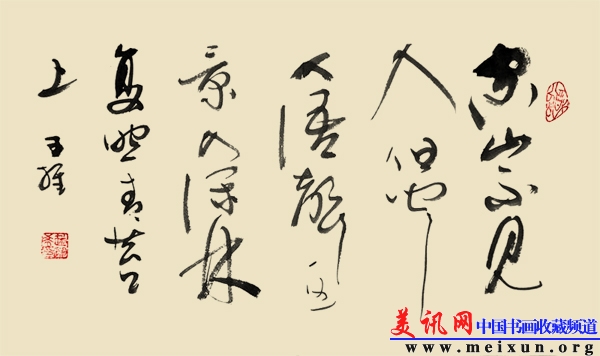 空山不见
人但闻
人语响返
景入深林
复照青苔
上 王维
美讯网 中国书画收藏频道
www.meixun.org